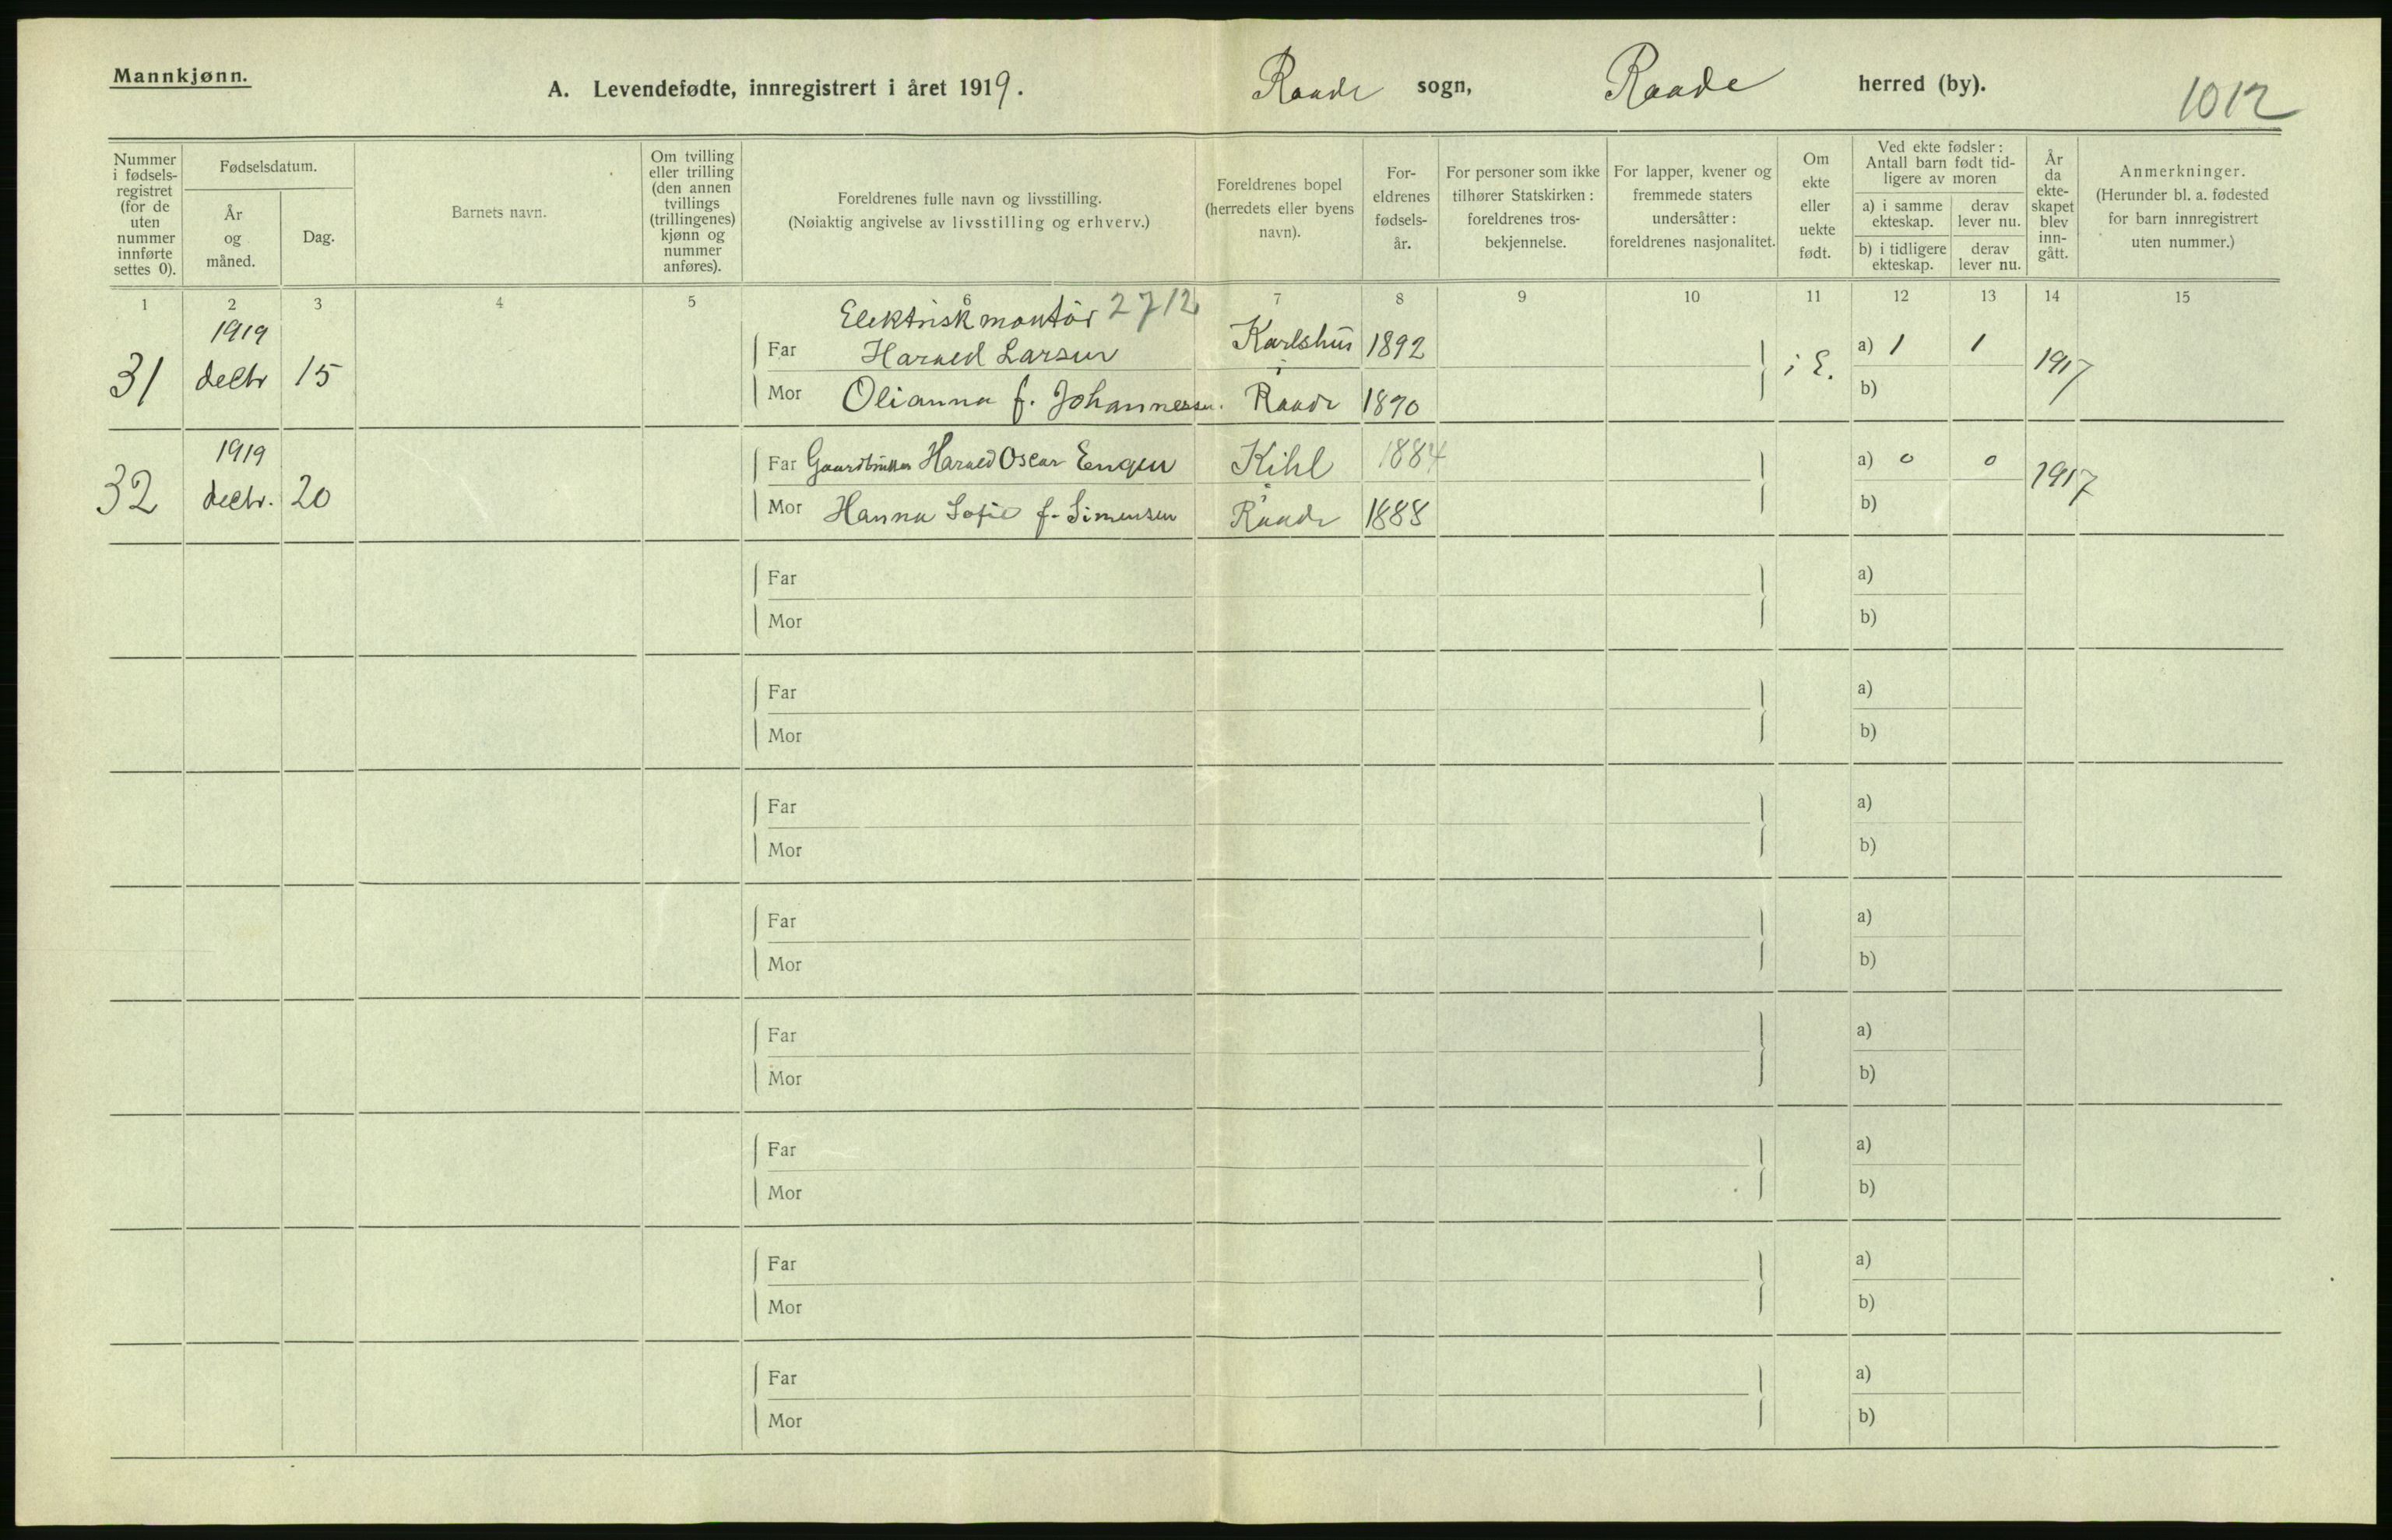 Mannkjønn.
A. Levendefødte, innregistrert i året 1919.
Raade sogn, Raade herred (by).
1012
Nummer i fødsels-registret (for de uten nummer innførte settes 0).
Fødselsdatum.
År og måned.
Dag.
Barnets navn.
Om tvilling eller trilling (den annen tvillings (trillingenes) kjønn og nummer anføres).
Foreldrenes fulle navn og livsstilling.
(Nøiaktig angivelse av livsstilling og erhverv.)
Foreldrenes bopel (herredets eller byens navn).
For-eldrenes fødsels-år.
For personer som ikke tilhører Statskirken: foreldrenes tros-bekjennelse.
For lapper, kvener og fremmede staters undersåtter: foreldrenes nasjonalitet.
Om ekte eller uekte født.
Ved ekte fødsler: Antall barn født tid-ligere av moren
a) i samme ekteskap.
derav lever nu.
b) i tidligere ekteskap.
derav lever nu.
År da ekte-skapet blev inn-gått.
Anmerkninger.
(Herunder bl. a. fødested for barn innregistrert uten nummer.)
1 2 3 4 5 6 7 8 9 10 11 12 13 14 15
1919 Elektrisk montör 2712
31 decbr 15 Far Harald Larsen Karlshus 1892 i E. a) 1 1 1917
Mor Olianna f. Johannessen. i Raade 1890 b)
1919
32 decbr. 20 Far Gaardbruker Harald Oscar Engen Kihl 1884 a) 0 0 1917
Mor Hanna Sofie f. Simensen i Raade 1888 b)
Far a)
Mor b)
Far a)
Mor b)
Far a)
Mor b)
Far a)
Mor b)
Far a)
Mor b)
Far a)
Mor b)
Far a)
Mor b)
Far a)
Mor b)